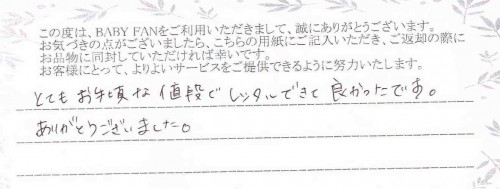 この度は、BABY FANをご利用いただきまして、誠にありがとうございます。
お気づきの点がございましたら、こちらの用紙にご記入いただき、ご返却の際に
お品物に同封していただければ幸いです。
お客様にとって、よりよいサービスをご提供できるように努力いたします。
とてもお手頃な値段でレンタルできて良かったです。
ありがとうございました。